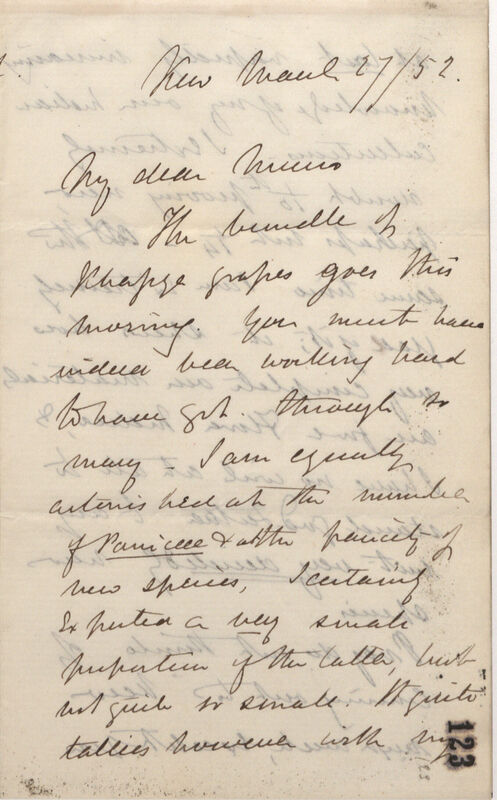 Kew March 27/52.
My dear Munro
The bundle of
Khasya grapes goes this
morning. You must have
indeed been working hard
to have got through so
many – I am equally
astonished at the number
of Paniceae & at the paucity of
new species, I certainly
Expected a very small
proportion of the latter, but
not quite so small. It quite
tallies however with my
123